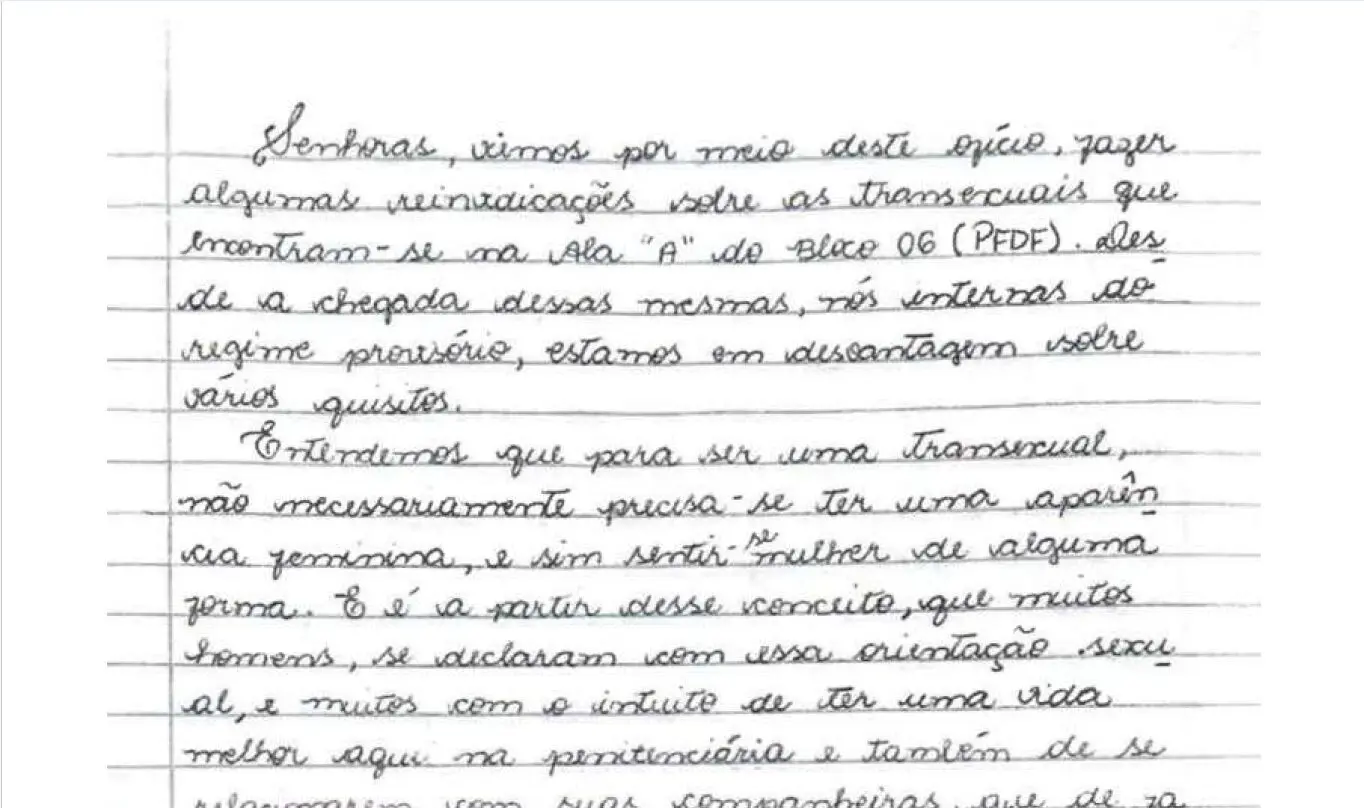 Senhoras, vimos por meio deste ofício, fazer
algumas reinvidicações sobre as transexuais que
encontram-se na Ala "A" do Bloco 06 (PFDF). Des
de a chegada dessas mesmas, nós internas do
regime provisório, estamos em desvantagem sobre
vários quisitos.
Entendemos que para ser uma transexual,
não necessariamente precisa-se ter uma aparên
cia feminina, e sim sentir-se mulher de alguma
forma. E é a partir desse conceito, que muitos
homens, se declaram com essa orientação sexu
al, e muitos com o intuito de ter uma vida
melhor aqui na penitenciária e também de se
relacionarem com suas companheiras, que de fa